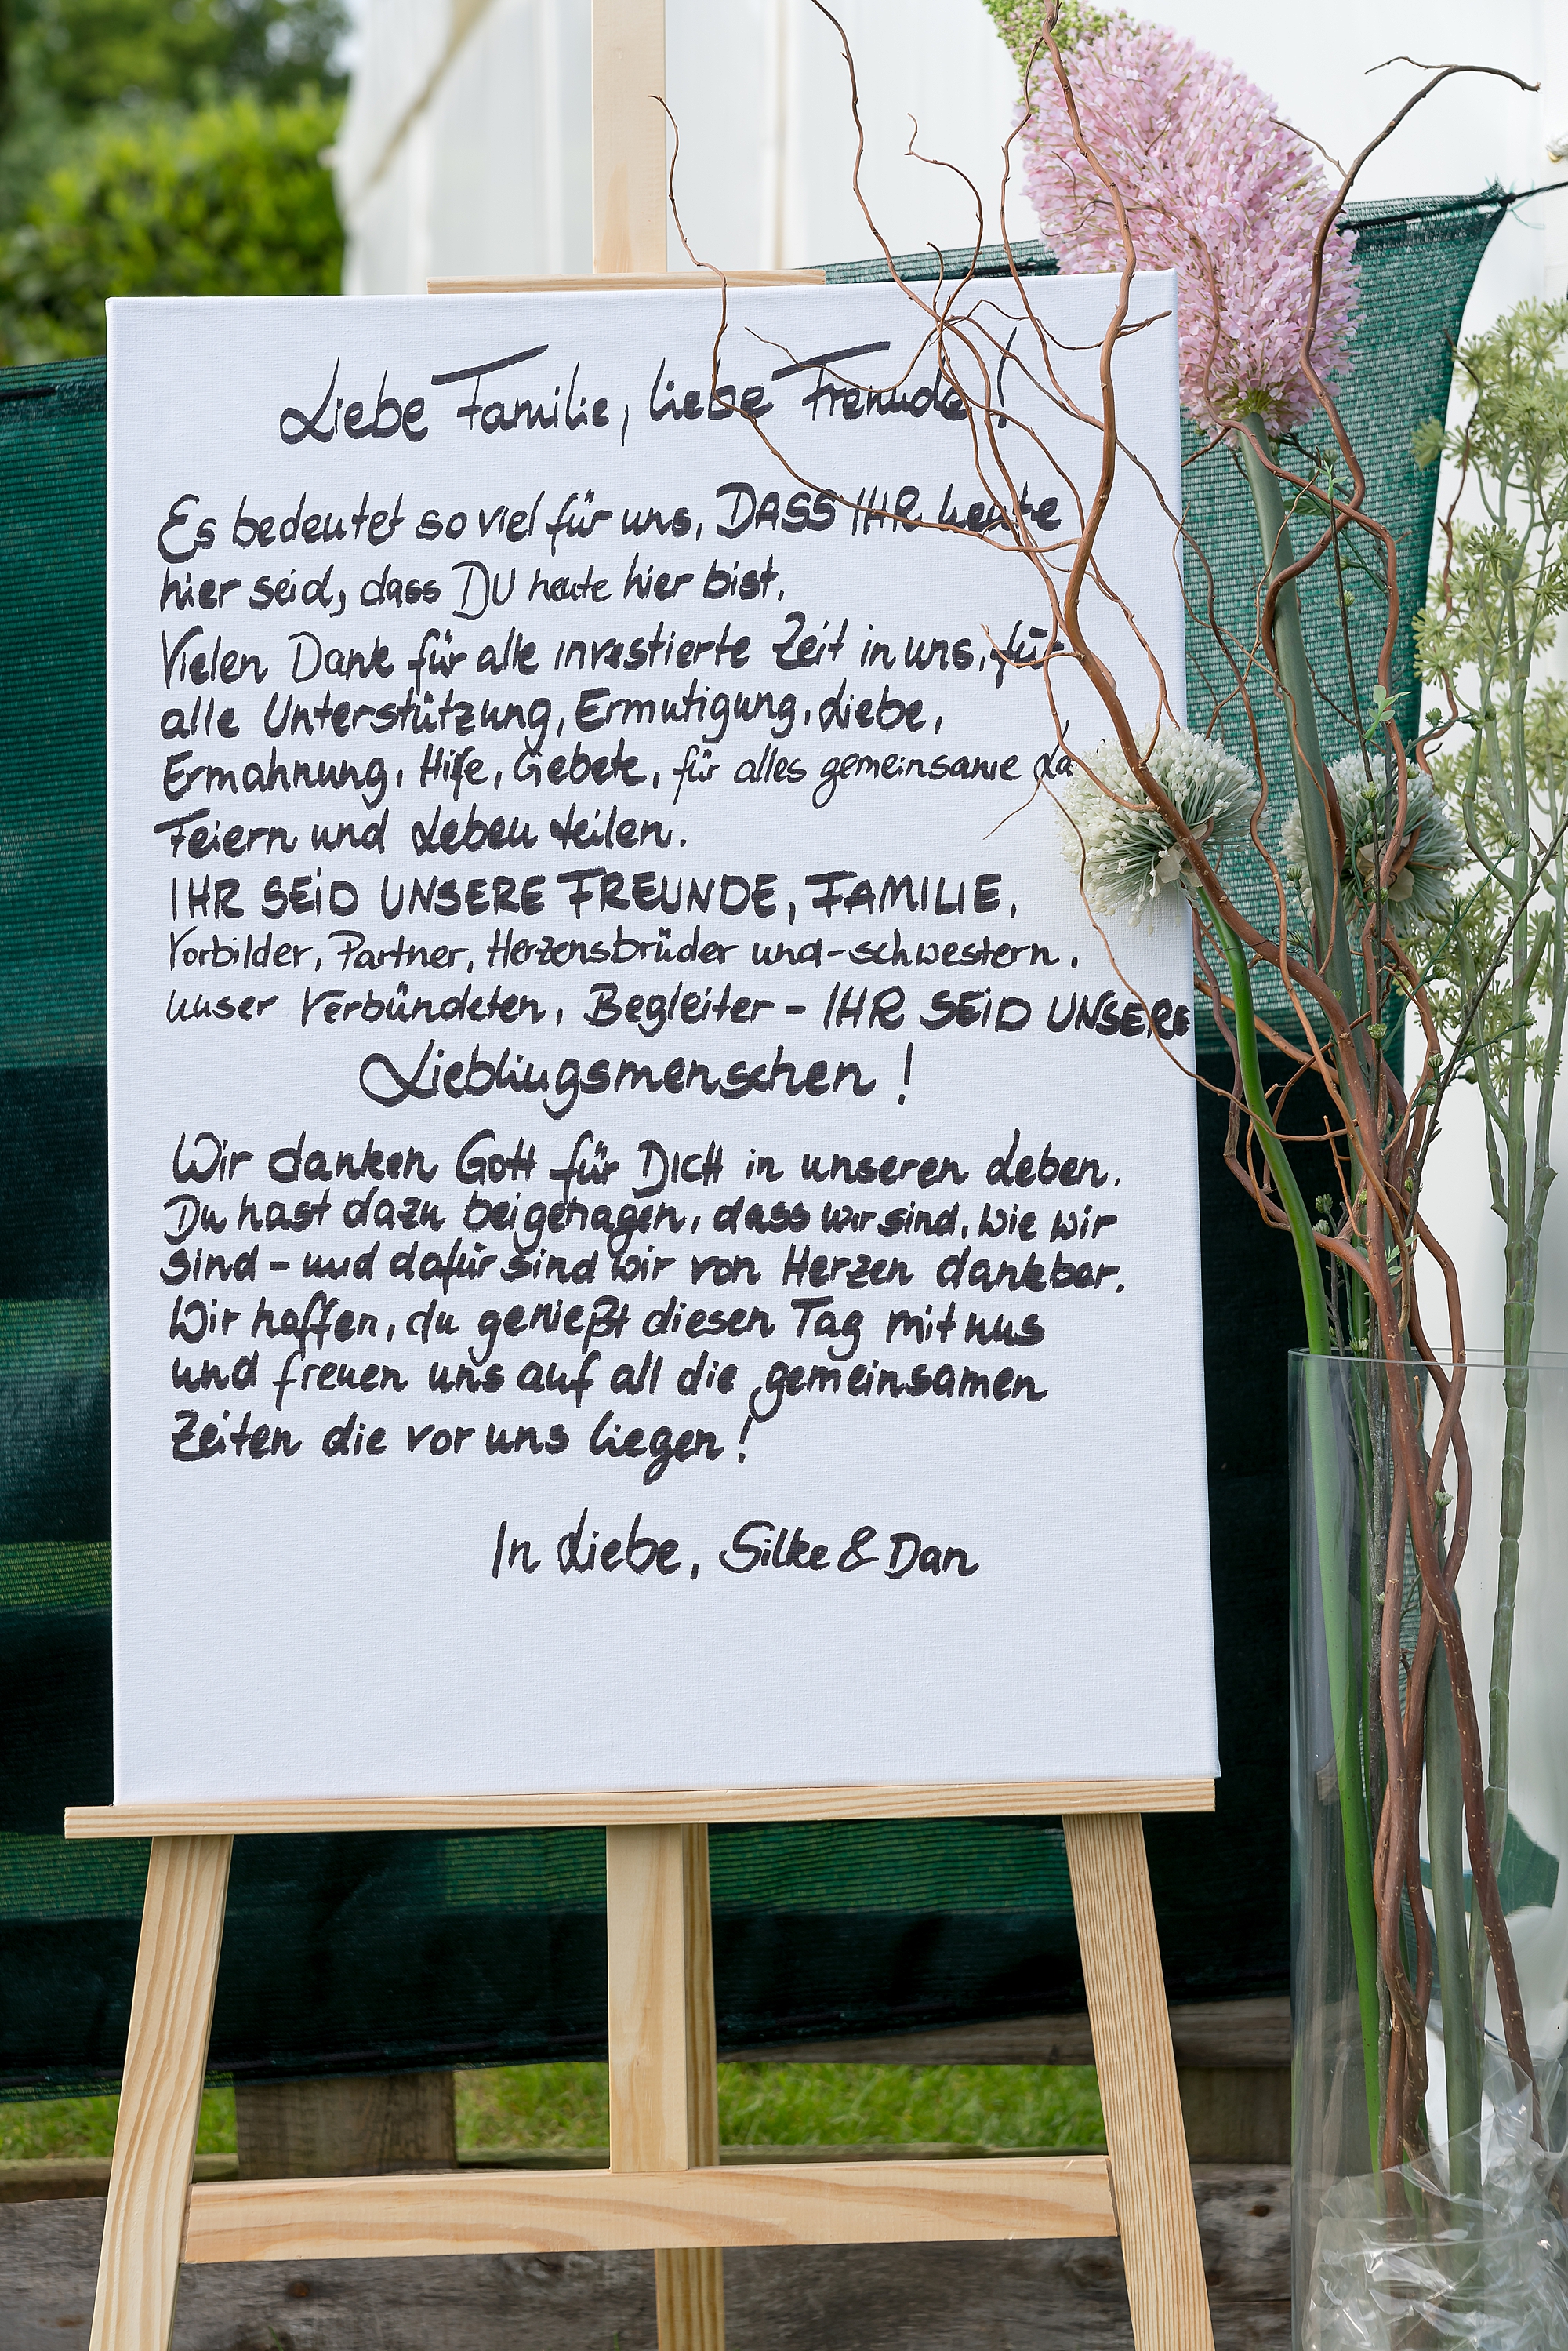 Liebe Familie, liebe Freunde!
Es bedeutet so viel für uns, DASS IHR heute
hier seid, dass DU heute hier bist.
Vielen Dank für alle investierte Zeit in uns, für
alle Unterstützung, Ermutigung, Liebe,
Ermahnung, Hilfe, Gebete, für alles gemeinsame
Feiern und Leben teilen.
IHR SEID UNSERE FREUNDE, FAMILIE,
Vorbilder, Partner, Herzensbrüder und -schwestern.
unser Verbündeten, Begleiter - IHR SEID UNSERE
Lieblingsmenschen!
Wir danken Gott für DICH in unseren Leben.
Du hast dazu beigetragen, dass wir sind, wie wir
sind - und dafür sind wir von Herzen dankbar.
Wir hoffen, du genießt diesen Tag mit uns
und freuen uns auf all die gemeinsamen
Zeiten die vor uns liegen!
In Liebe, Silke & Dan